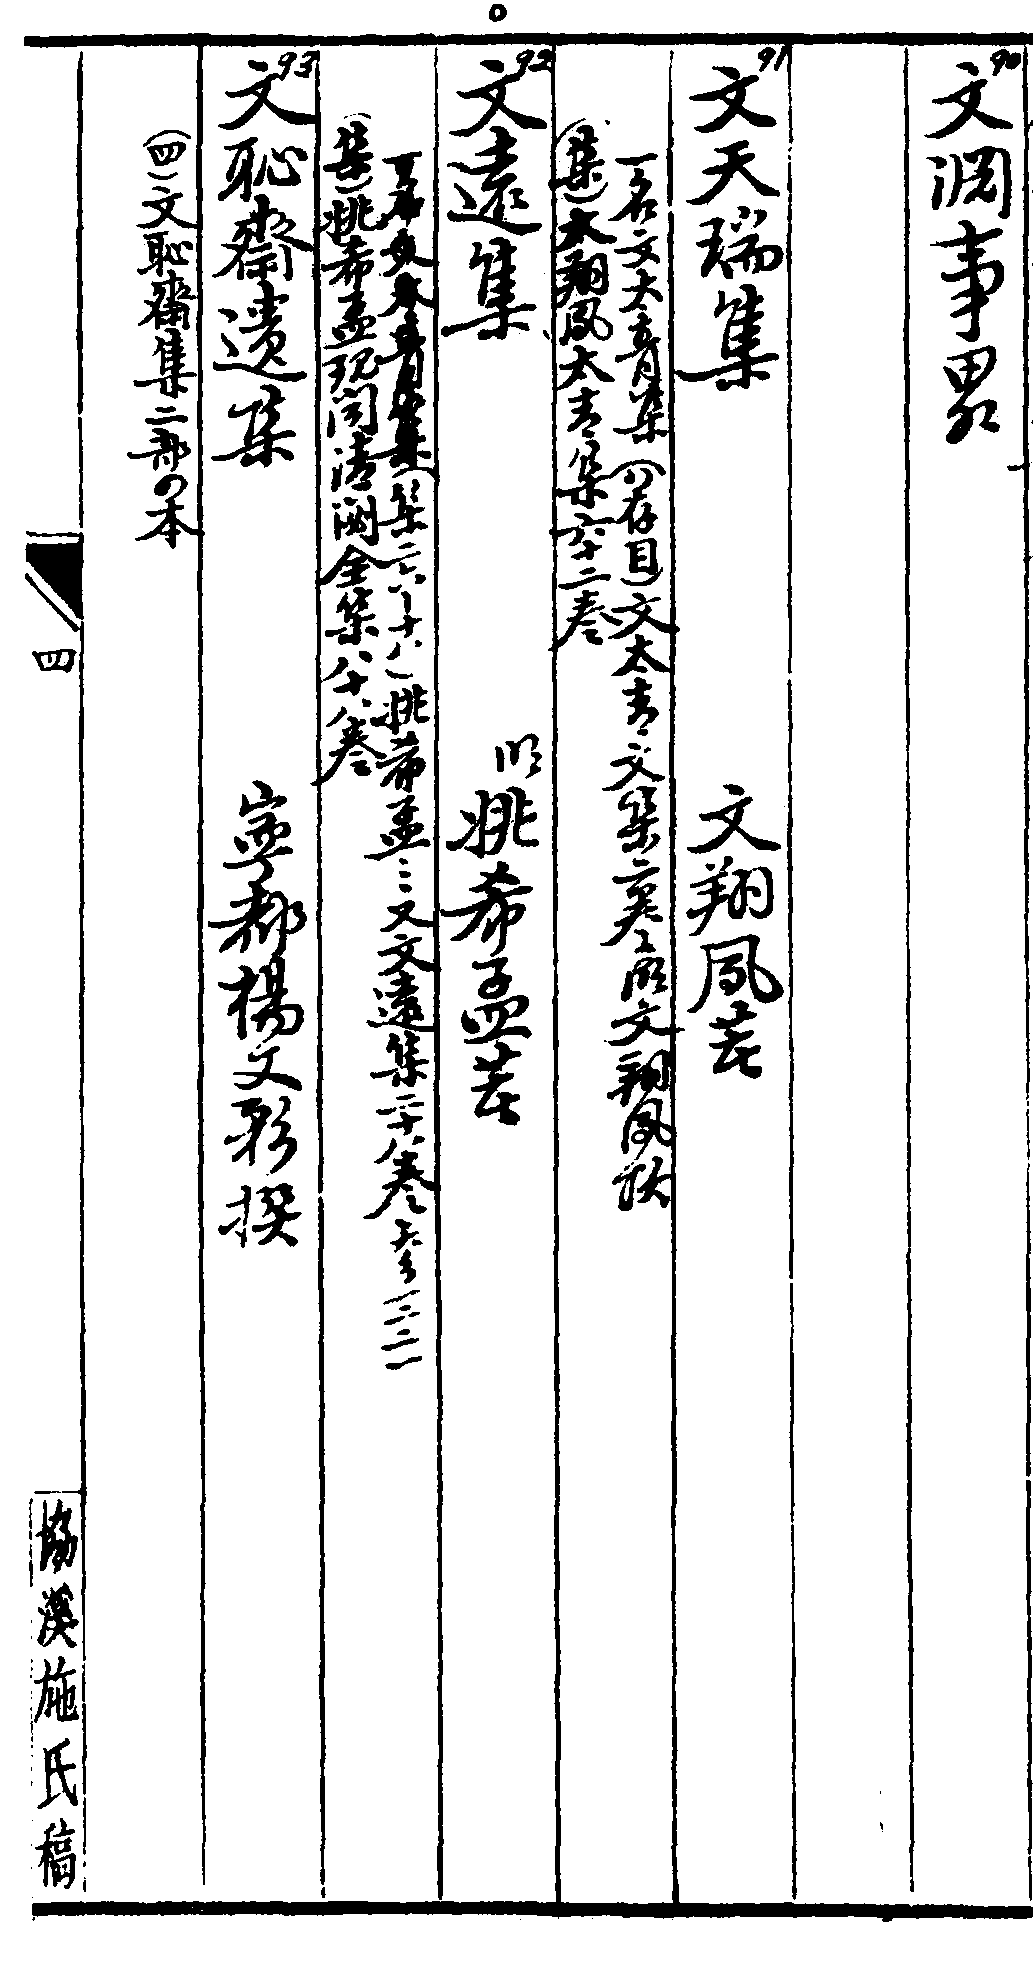 90
文淵事畧
91
文天瑞集 文翔鳳著
一名文太青集(八存目)文太青文集二卷明文翔鳳
(集)文翔鳳太青集六十二卷
92
文遠集 明姚希孟著
姚希孟 又文遠集二十八卷
集)姚希孟現聞清閟全集八十八卷
93
文恥齋遺集 寧都楊文彩撰
(四)文恥齋集二部の本
四
協溪施氏稿